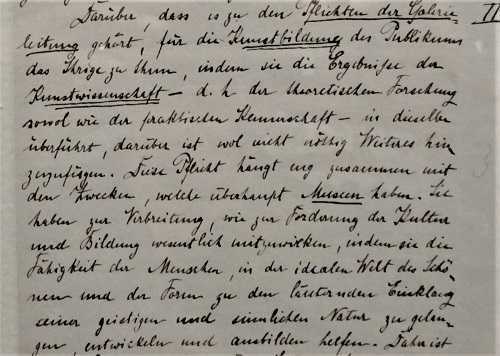 Darüber, dass es zu den Pflichten der Galerie- II
leitung gehört, für die Kunstbildung des Publikums
das Ihrige zu thun, indem sie die Ergebnisse der
Kunstwissenschaft – d. h. der theoretischen Forschung
sowol wie der praktischen Kennerschaft – in dieselbe
überführt, darüber ist wol nicht nöthig Weiteres hin
zuzufügen. Diese Pflicht hängt eng zusammen mit
den Zwecken, welche überhaupt Museen haben. Sie
haben zur Verbreitung, wie zur Förderung der Kultur
und Bildung wesentlich mitzuwirken, indem sie die
Fähigkeit der Menschen, in der idealen Welt des Schö-
nen und der Form zu den läuternden Einklang
seiner geistigen und sinnlichen Natur zu gelan-
gen, entwickeln und ausbilden helfen. Daher ist